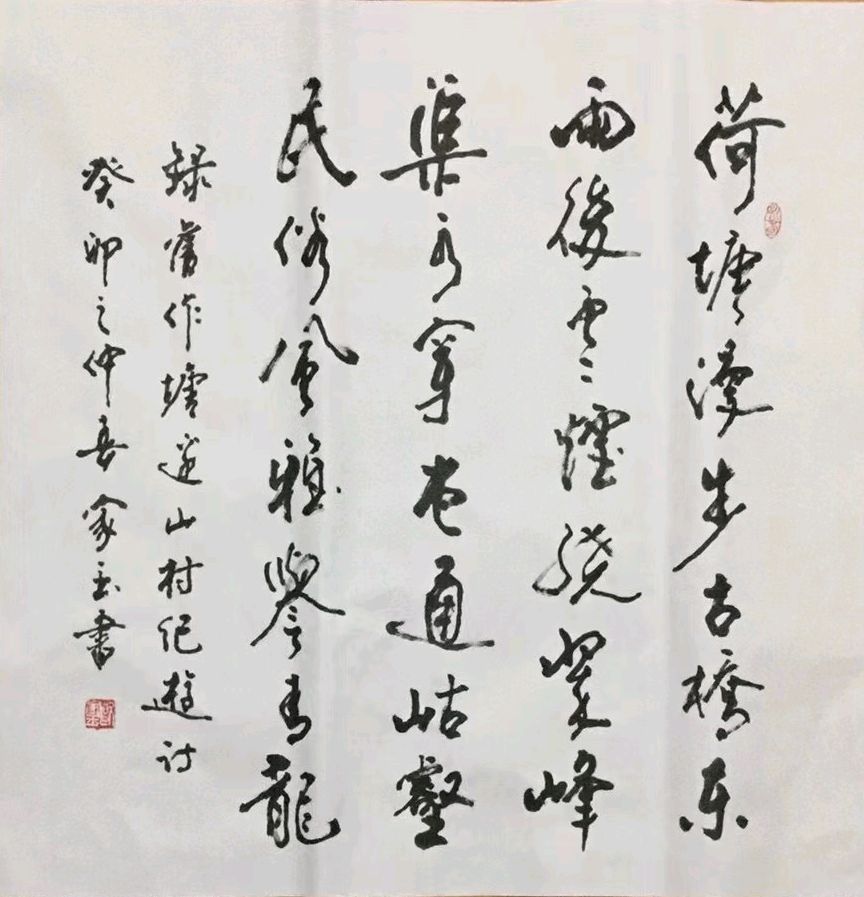 荷塘漫步古橋东
雨後雲煙繞翠峰
渠水穿巷通岵壑
民俗風雅譽青龍
錄舊作塘邊山村纪遊詩
癸卯之仲春家玉書